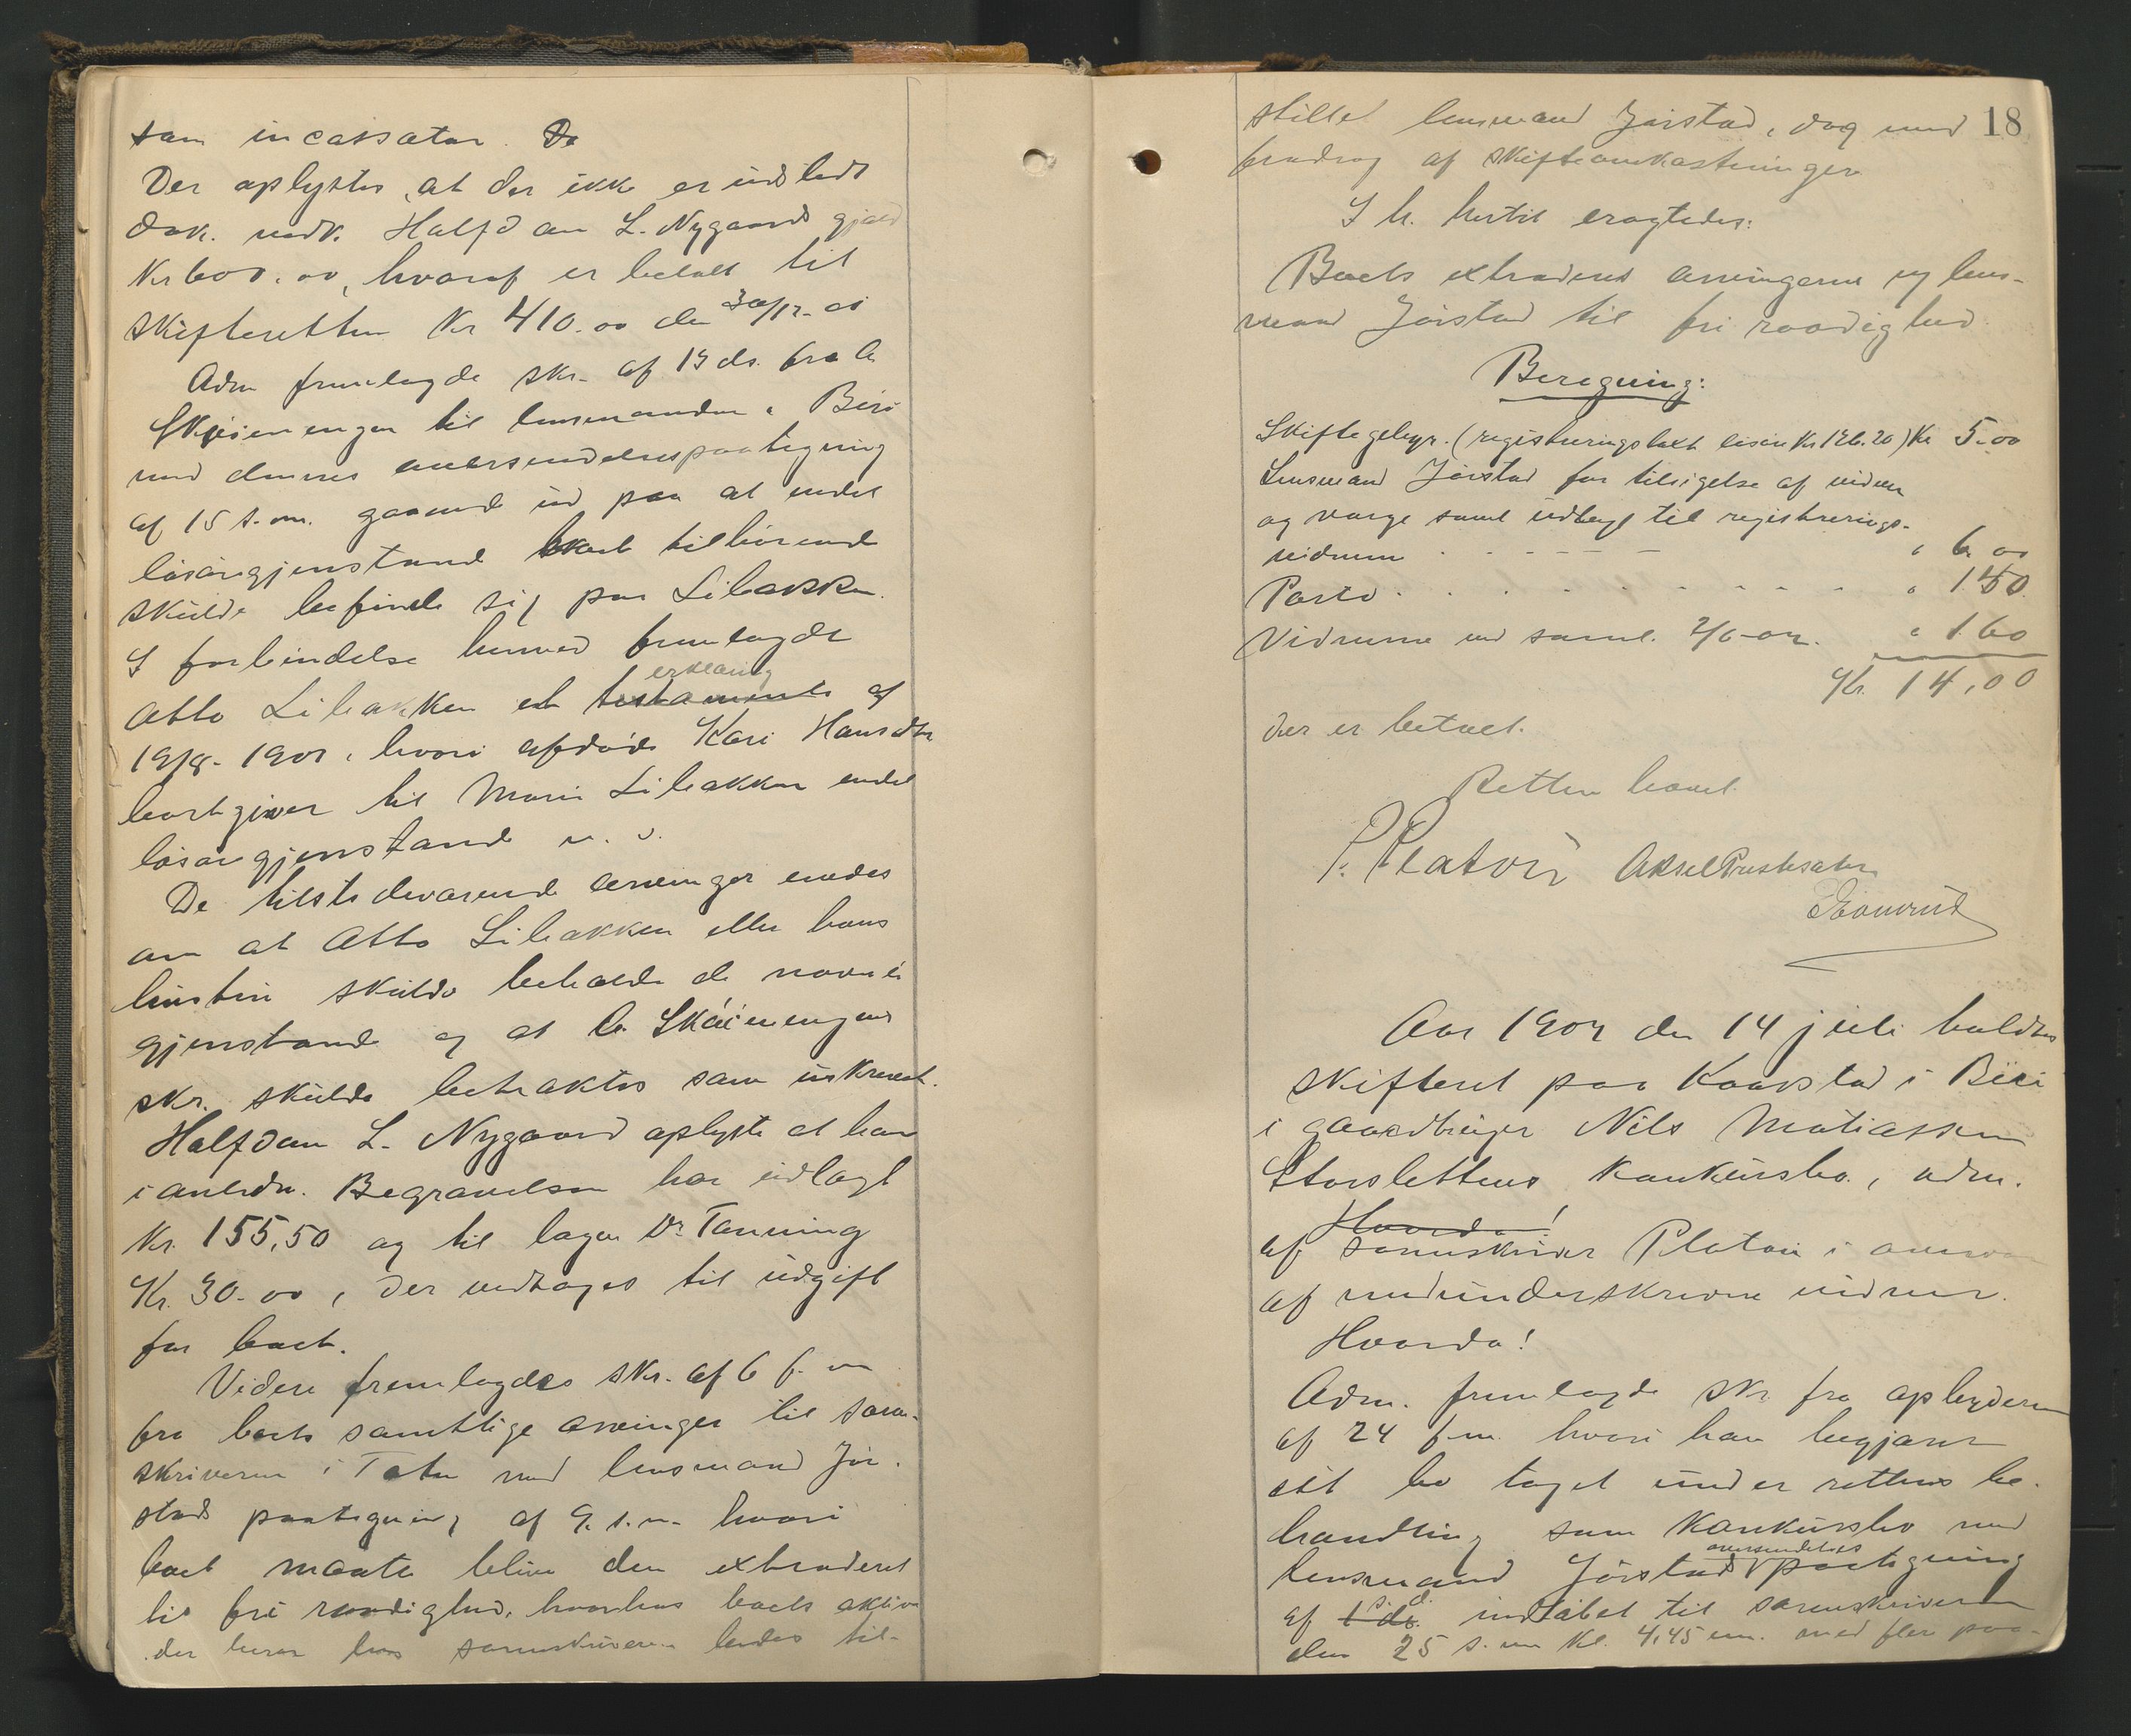 som incassator. De
Der oplystes, at der ikke er udstedt
dok. vedk. Halfdan L. Nygaards gjæld
Kr 600.00, hvoraf er betalt til
skifteretten Kr 410.00 den 30/12-01
Adm fremlagde skr. af 13 ds. fra
Skjeienengen til lensmanden i Biri
med dennes oversendelsespaategning
af 15 s.m. gaaende ud paa at endel
løsøregjenstande boet tilhørende
skulde befinde sig paa Libakken.
I forbindelse hermed fremlagde
erklæring
Otto Libakken et testamente af
19/8-1901, hvori afdøde Kari Hansdtr
bortgiver til Marie Libakken endel
løsøregjenstande
De tilstedeværende arvinger enedes
om at Otto Libakken eller hans
hustru skulde beholde de nævnte
gjenstande og at Skøienengens
skr. skulde betraktes som
Halfdan L. Nygaard oplyste at han
i anledn. Begravelsen har udlagt
Kr. 155,50 og til læge Dr Tanning
Kr. 30.00, der vedtages til udgift
for boet.
Videre fremlagdes skr. af 6 f. m
fra boets samtlige arvinger til soren-
skriveren i Toten med lensmand Jør-
stads paategning af 9. s.m. hvori
boet maatte blive dem extraderet
til fri raadighed, hvorhos boets aktiva
der beror hos sorenskriveren bedes til-
18
stillet lensmand Jørstad, dog med
fradrag af skifteomkostninger
I h. hertil eragtedes:
Boets extraderes arvingerne v/ lens-
mand Jørstad til fri raadighed
Beregning:
Skiftegebyr. (registreringstaxt Kr 196.20) Kr 5.00
Lensmand Jørstad for tilsigelse af vidner
og værge samt udlagt til registrerings-
vidnene - - - - - " 6.00
Porto - - - - - - - - " 1.50
Vidnerne ved saml. 2/6-02. " 1.60
Kr. 14,00
der er betalt.
Retten hævet.
P. Platou Aksel Prestesæter

Aar 1902 den 14 juli holdtes
skifteret paa Kaarstad i Biri
i gaardbruger Nils Matiassen
Storslettens konkursbo, adm.
Hvorda!
af sorenskriver Platou i overvær
af medunderskrevne vidner.
Hvorda!
Adm. fremlagde skr fra opbyderen
af 24 f.m. hvori han begjærer
sit bo taget under rettens be-
handling som konkursbo med
oversendelses
lensmand Jørstads paategning
s. d.
af 1 ds. indtabet til sorenskriveren
den 25 s.m Kl. 4,45 em. med fler paa-